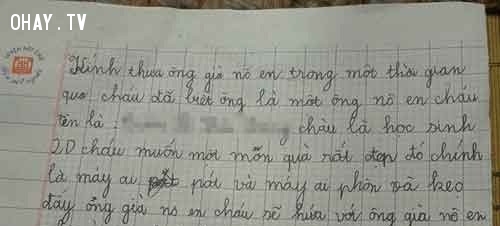 OHAY.TV
Kính thưa ông già nô en trong một thời gian
qua cháu đã biết ông là một ông nô en cháu
tên là : cháu là học sinh
2D cháu muốn một món quà rất đẹp đó chính
là máy ai pát và máy ai phôn và kẹo
đấy ông già no en cháu sẽ hứa với ông già nô en